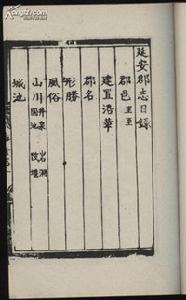 延安郡志目錄
郡邑 里至
建置沿革
郡名
形勝
風俗
山川 井泉 岩洞
城池